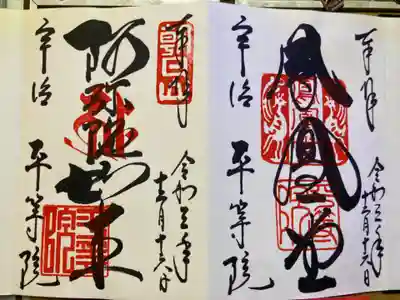 奉拝
鳳凰堂
令和三年
十二月十六日
宇治 平等院
奉拝
阿弥陀如来
令和三年
十二月十六日
宇治 平等院